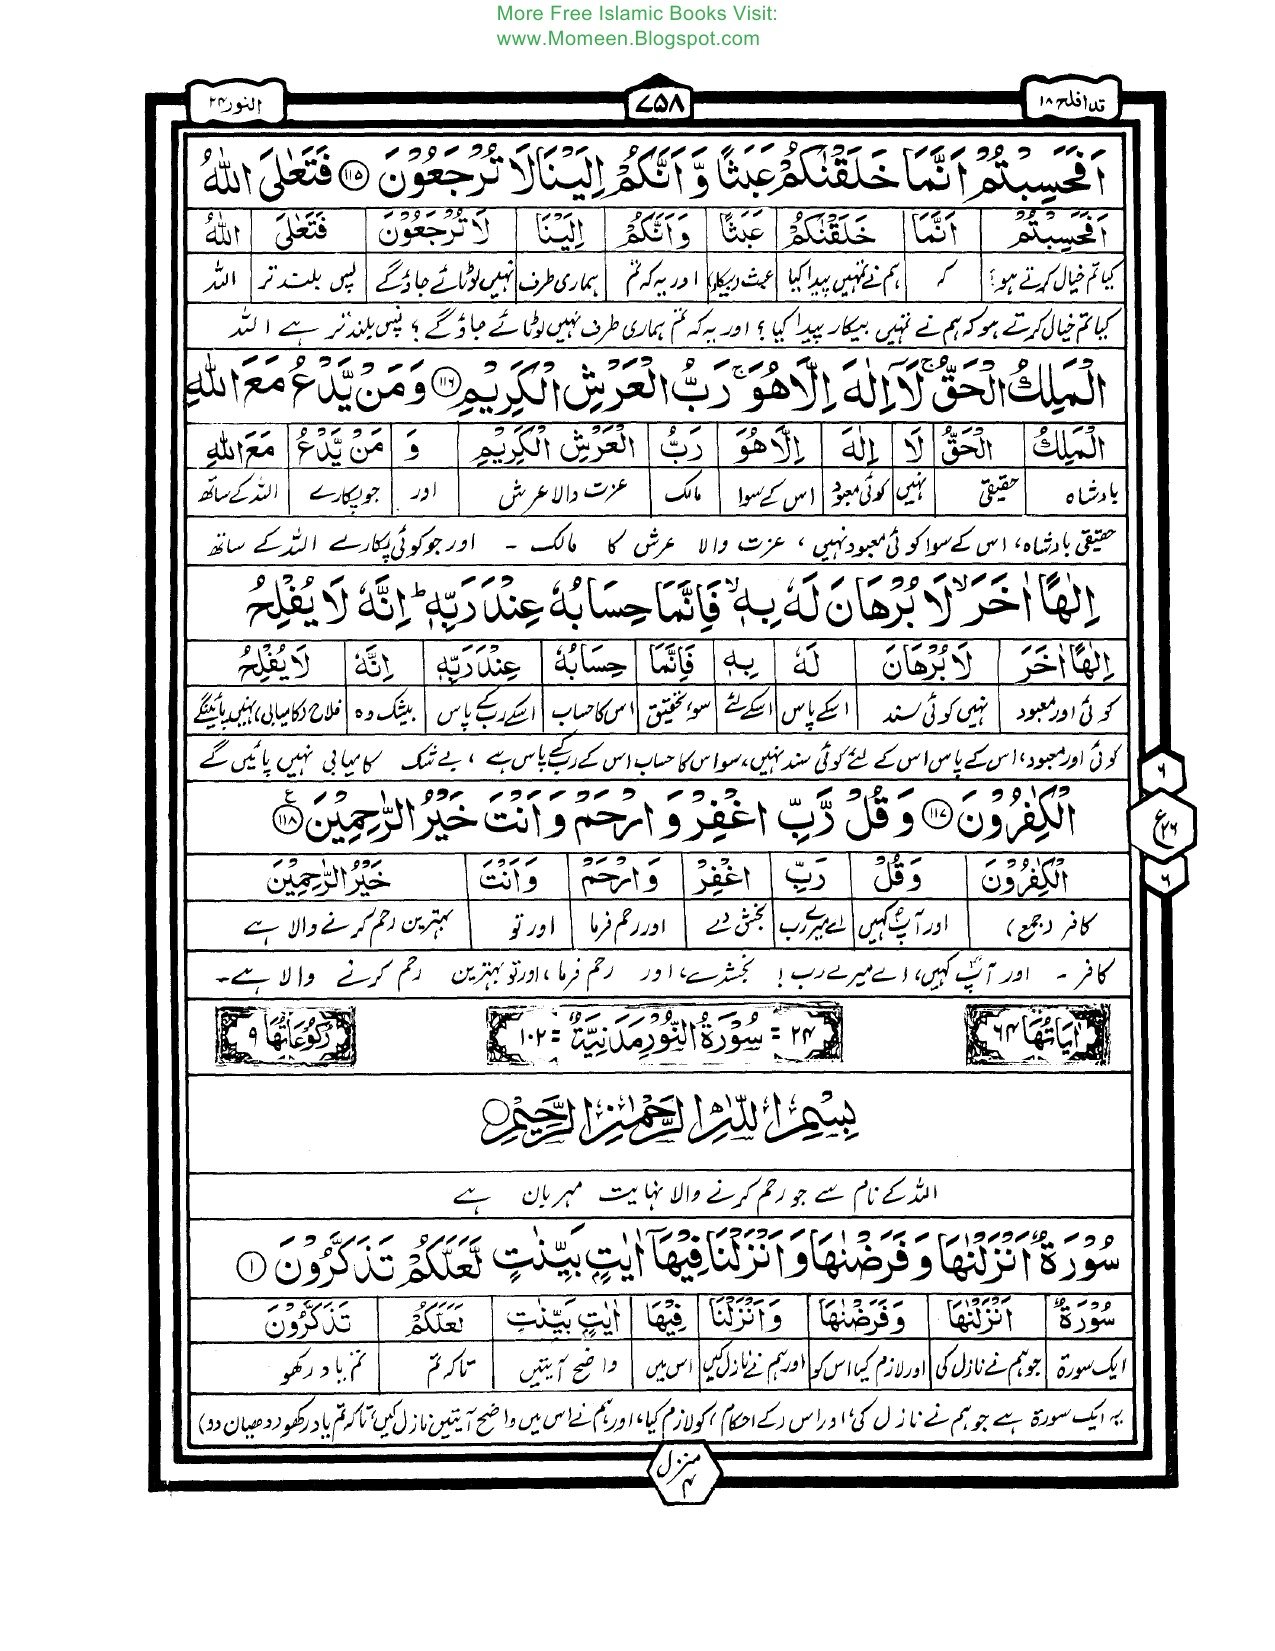 More Free Islamic Books Visit:
www.Momeen.Blogspot.com
قد افلح ۱۸ ۷۵۸ النور ۲۴
اَفَحَسِبْتُمْ اَنَّمَا خَلَقْنٰكُمْ عَبَثًا وَّ اَنَّكُمْ اِلَیْنَا لَا تُرْجَعُوْنَ ۝۱۱۵ فَتَعٰلَی اللّٰهُ
اَفَحَسِبْتُمْ اَنَّمَا خَلَقْنٰكُمْ عَبَثًا وَّاَنَّكُمْ اِلَیْنَا لَا تُرْجَعُوْنَ فَتَعٰلَی اللّٰهُ
کیا تم خیال کرتے ہو؟ کہ ہم نے تمہیں پیدا کیا عبث (بیکار) اور یہ کہ تم ہماری طرف نہیں لوٹائے جاؤگے پس بلند تر اللہ
کیا تم خیال کرتے ہو کہ ہم نے تمہیں بیکار پیدا کیا؟ اور یہ کہ تم ہماری طرف نہیں لوٹائے جاؤگے؟ پس بلند تر ہے اللہ
الْمَلِكُ الْحَقُّ ۚ لَاۤ اِلٰهَ اِلَّا هُوَ ۚ رَبُّ الْعَرْشِ الْكَرِیْمِ ۝۱۱۶ وَ مَنْ یَّدْعُ مَعَ اللّٰهِ
الْمَلِكُ الْحَقُّ لَا اِلٰهَ اِلَّا هُوَ رَبُّ الْعَرْشِ الْكَرِیْمِ وَ مَنْ یَّدْعُ مَعَ اللّٰهِ
بادشاہ حقیقی نہیں کوئی معبود اس کے سوا مالک عزت والا عرش اور جو پکارے اللہ کے ساتھ
حقیقی بادشاہ، اس کے سوا کوئی معبود نہیں، عزت والا عرش کا مالک - اور جو کوئی پکارے اللہ کے ساتھ
اِلٰهًا اٰخَرَ ۙ لَا بُرْهَانَ لَهٗ بِهٖ ۙ فَاِنَّمَا حِسَابُهٗ عِنْدَ رَبِّهٖ ؕ اِنَّهٗ لَا یُفْلِحُ
اِلٰهًا اٰخَرَ لَا بُرْهَانَ لَهٗ بِهٖ فَاِنَّمَا حِسَابُهٗ عِنْدَ رَبِّهٖ اِنَّهٗ لَا یُفْلِحُ
کوئی اور معبود نہیں کوئی سند اسکے پاس اسکے لئے سو تحقیق اس کا حساب اسکے رب کے پاس بیشک وہ فلاح (کامیابی) نہیں پائینگے
کوئی اور معبود، اس کے پاس اس کے لئے کوئی سند نہیں، سو اس کا حساب اس کے رب کے پاس ہے، بے شک کامیابی نہیں پائیں گے
الْكٰفِرُوْنَ ۝۱۱۷ وَ قُلْ رَّبِّ اغْفِرْ وَ ارْحَمْ وَ اَنْتَ خَیْرُ الرّٰحِمِیْنَ ۝۱۱۸ ع
۶
ع ۲۶
۶
الْكٰفِرُوْنَ وَ قُلْ رَبِّ اغْفِرْ وَ ارْحَمْ وَ اَنْتَ خَیْرُ الرّٰحِمِیْنَ
کافر (جمع) اور آپ کہیں اے میرے رب بخش دے اور رحم فرما اور تو بہترین رحم کرنے والا ہے
کافر - اور آپ کہیں، اے میرے رب! بخشدے، اور رحم فرما، اور تو بہترین رحم کرنے والا ہے۔
اٰیَاتُهَا ۶۴ ۲۴ = سُوْرَةُ النُّوْرِ مَدَنِیَّةٌ = ۱۰۲ رُكُوْعَاتُهَا ۹
بِسْمِ اللّٰهِ الرَّحْمٰنِ الرَّحِیْمِ
اللہ کے نام سے جو رحم کرنے والا نہایت مہربان ہے
سُوْرَةٌ اَنْزَلْنٰهَا وَ فَرَضْنٰهَا وَ اَنْزَلْنَا فِیْهَاۤ اٰیٰتٍۭ بَیِّنٰتٍ لَّعَلَّكُمْ تَذَكَّرُوْنَ ۝۱
سُوْرَةٌ اَنْزَلْنٰهَا وَ فَرَضْنٰهَا وَ اَنْزَلْنَا فِیْهَا اٰیٰتٍۭ بَیِّنٰتٍ لَعَلَّكُمْ تَذَكَّرُوْنَ
ایک سورۃ جو ہم نے نازل کی اور لازم کیا اس کو اور ہم نے نازل کیں اس میں واضح آیتیں تاکہ تم تم یاد رکھو
یہ ایک سورۃ ہے جو ہم نے نازل کی، اور اس (کے احکام) کو لازم کیا، اور ہم نے اس میں واضح آیتیں نازل کیں، تاکہ تم یاد رکھو (دھیان دو)
منزل ۴